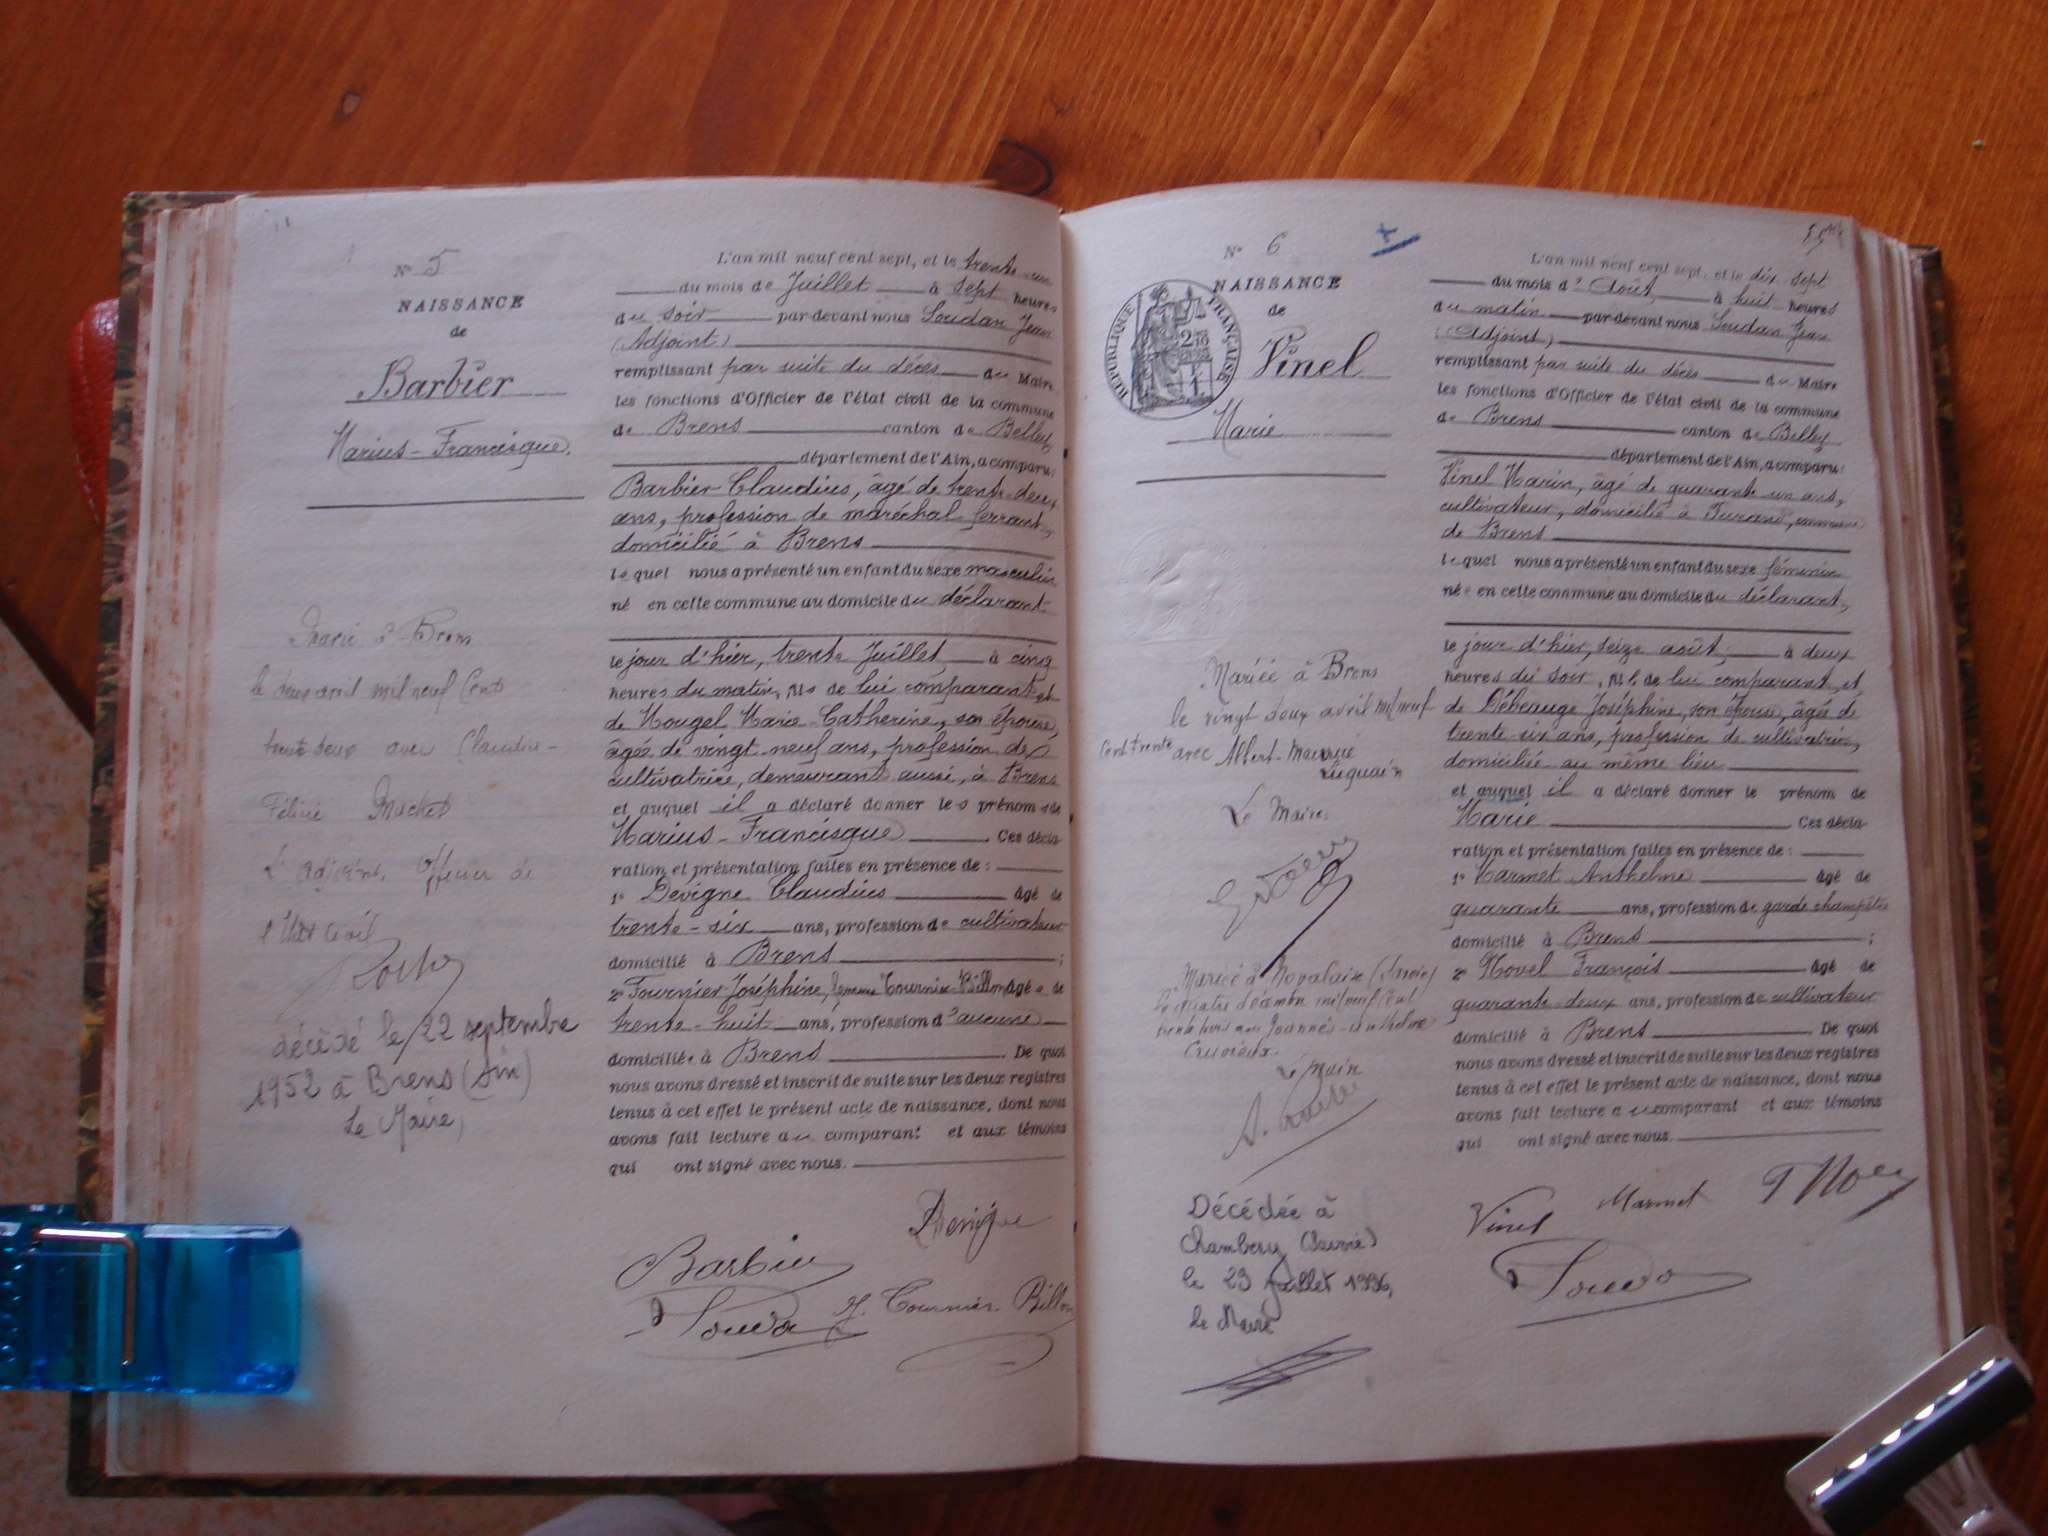 N° 5
NAISSANCE
de
Barbier
Marius-Francisque
Marié à Brens
le deux avril mil neuf cent
trente deux avec Claudia-
Félicie Machet
L'adjoint, Officier de
l'Etat Civil
décédé le 22 septembre
1952 à Brens (Ain)
Le Maire,
L'an mil neuf cent sept, et le trente-un
du mois de Juillet à sept heures
du soir par-devant nous Soudan Jean
(Adjoint)
remplissant par suite du décès du Maire
les fonctions d'Officier de l'état civil de la commune
de Brens canton de Belley
département de l'Ain, a comparu:
Barbier Claudius, âgé de trente-deux
ans, profession de maréchal-ferrant,
domicilié à Brens
lequel nous a présenté un enfant du sexe masculin
né en cette commune au domicile du déclarant
le jour d'hier, trente Juillet, à cinq
heures du matin, fils de lui comparant et
de Mougel Marie-Catherine, son épouse,
âgée de vingt-neuf ans, profession de
cultivatrice, demeurant aussi, à Brens
et auquel il a déclaré donner les prénoms de
Marius-Francisque Ces décla-
ration et présentation faites en présence de:
1° Devigne Claudius âgé de
trente-six ans, profession de cultivateur
domicilié à Brens ;
2° Fournier Joséphine, femme Tournier-Billon âgée de
trente-huit ans, profession d'aucune
domiciliée à Brens. De quoi
nous avons dressé et inscrit de suite sur les deux registres
tenus à cet effet le présent acte de naissance, dont nous
avons fait lecture au comparant et aux témoins
qui ont signé avec nous.
Devigne
Barbier
J. Tournier-Billon
N° 6
NAISSANCE
de
Vinel
Marie
RÉPUBLIQUE FRANÇAISE
Mariée à Brens
le vingt deux avril mil neuf
cent trente avec Albert-Maurice
Le Maire,
Mariée à Novalaise (Savoie)
le quatre décembre mil neuf cent
trente trois avec Joannès-Anthelme
Le Maire
Décédée à
Chambéry (Savoie)
le 23 juillet 1996,
Le Maire
L'an mil neuf cent sept, et le dix-sept
du mois d'Août à huit heures
du matin par-devant nous Soudan Jean
(Adjoint)
remplissant par suite du décès du Maire
les fonctions d'Officier de l'état civil de la commune
de Brens canton de Belley
département de l'Ain, a comparu:
Vinel Marin, âgé de quarante-un ans,
cultivateur, domicilié à commune
de Brens
lequel nous a présenté un enfant du sexe féminin
née en cette commune au domicile du déclarant,
le jour d'hier, seize août, à deux
heures du soir, fille de lui comparant et
de Débeauge Joséphine, son épouse, âgée de
trente-six ans, profession de cultivatrice,
domiciliée au même lieu
et auquel il a déclaré donner le prénom de
Marie Ces décla-
ration et présentation faites en présence de:
1° Marmet Anthelme âgé de
quarante ans, profession de garde champêtre
domicilié à Brens ;
2° Novel François âgé de
quarante-deux ans, profession de cultivateur
domicilié à Brens. De quoi
nous avons dressé et inscrit de suite sur les deux registres
tenus à cet effet le présent acte de naissance, dont nous
avons fait lecture au comparant et aux témoins
qui ont signé avec nous.
Vinel Marmet